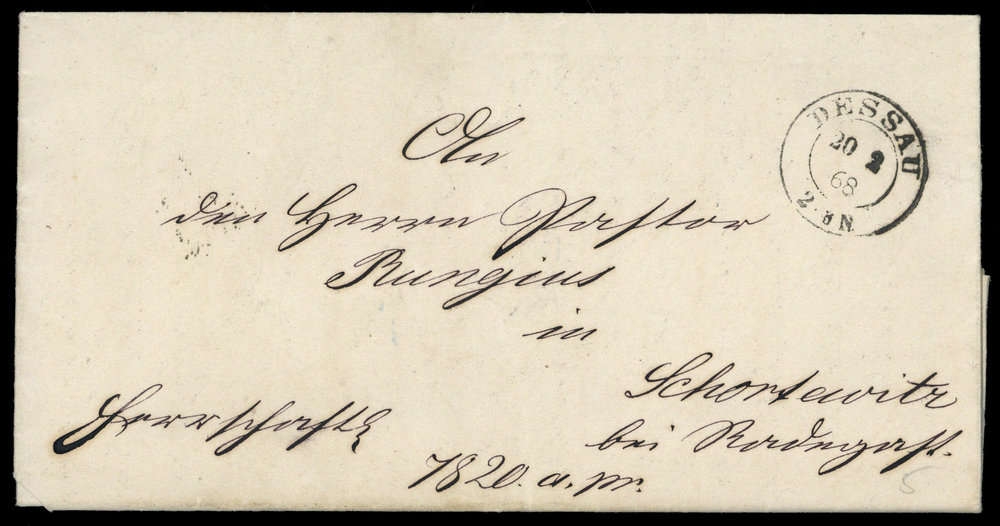 DESSAU
20 2
68
2-3N
An
den Herrn Pastor
Rungius
in
Schortewitz
bei Radegast.
Herrschaftl
7820. a. pr.